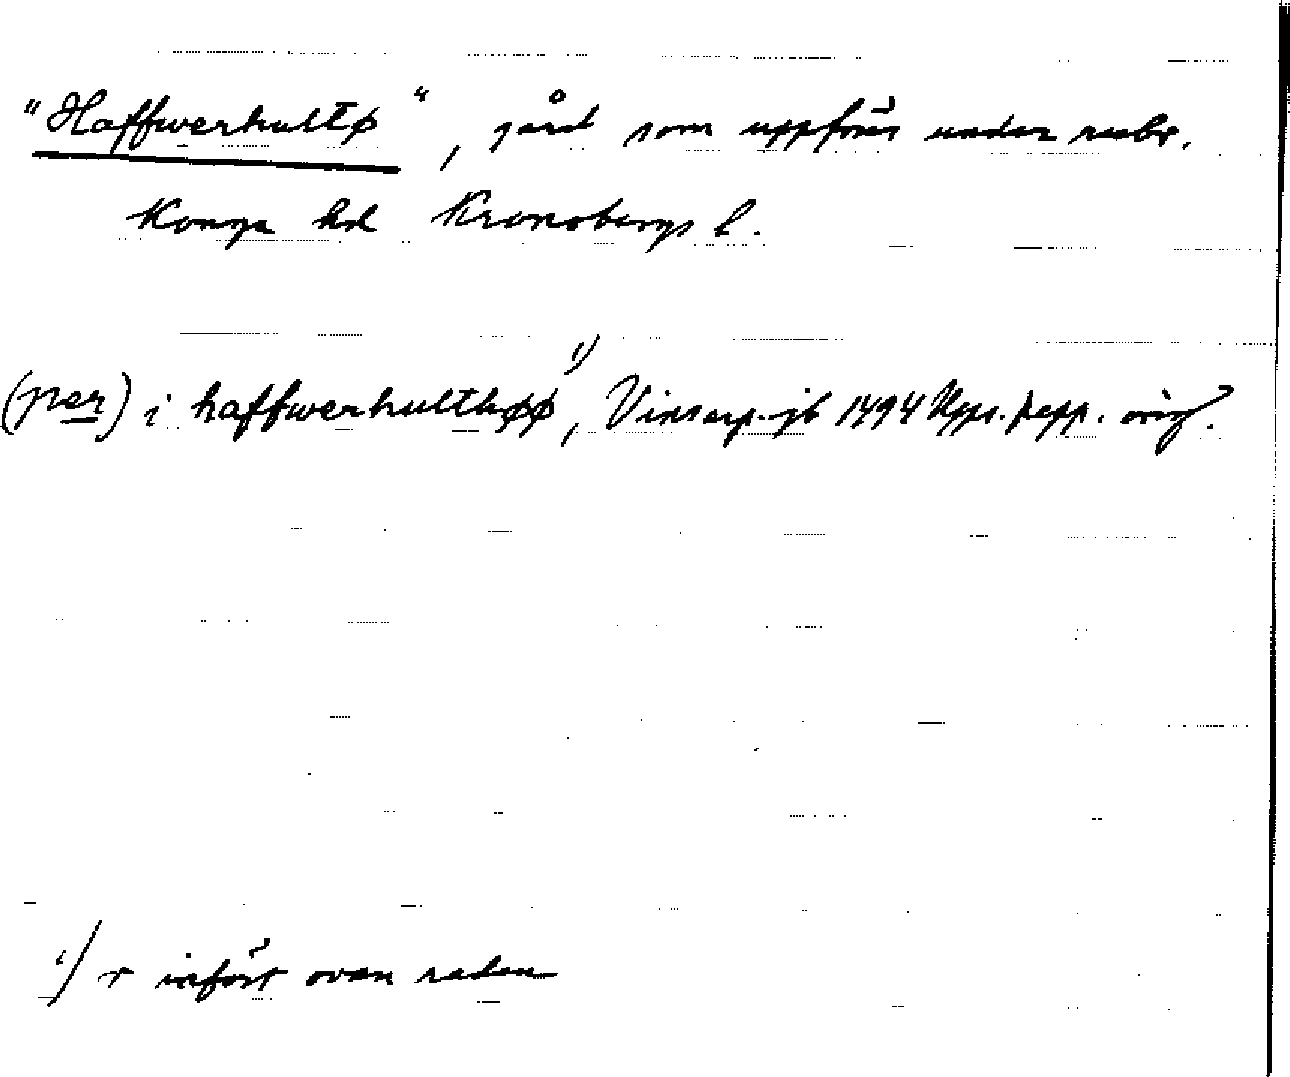 "Haffwerhultø", gård som uppföres under rubr.
Konga hd Kronobergs l.
(per) i haffwerhulthøø ¹⁾, Vinsarp. jb 1494 Upps. papp. orig?
¹⁾ r infört ovan raden